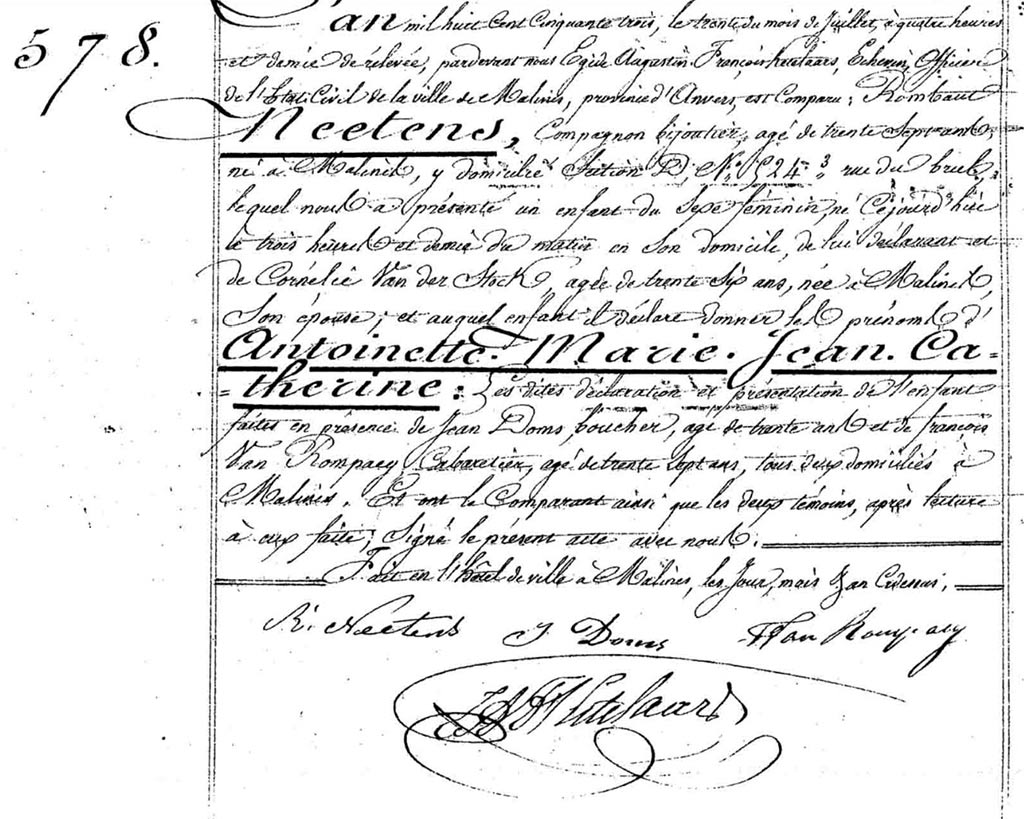 578.
L'an mil huit Cent Cinquante trois, le trente du mois de Juillet, à quatre heures
et demie de rélevée, pardevant nous Egide Augustin François hetelaars, Echevin, Officier
de l'Etat Civil de la ville de Malines, province d'Anvers, est Comparu: Rombaut
Neetens, Compagnon bijoutier, agé de trente Sept ans,
né à Malines, y domicilié Section D, No 524 3 rue du bruel,
lequel nous a présenté un enfant du Sexe féminin, né Cejourd'hui
à trois heures et demie du matin en Son domicile, de lui déclarant et
de Cornélie Van der Stock, agée de trente Six ans, née à Malines,
Son épouse; et auquel enfant il déclare donner les prénoms d'
Antoinette. Marie. Jean. Ca-
-therine: Les dites déclaration et présentation de l'enfant
faites en présence de Jean Doms, boucher, agé de trente ans et de françois
Van Rompaey, Cabaretier, agé de trente Sept ans, tous deux domiciliés à
Malines. Et ont le Comparant ainsi que les deux témoins, après lecture
à eux faite, Signé le présent acte avec nous.
Fait en l'hôtel de ville à Malines, les Jour, mois & an Cidessus.
R. Neetens J Doms F Van Rompaey